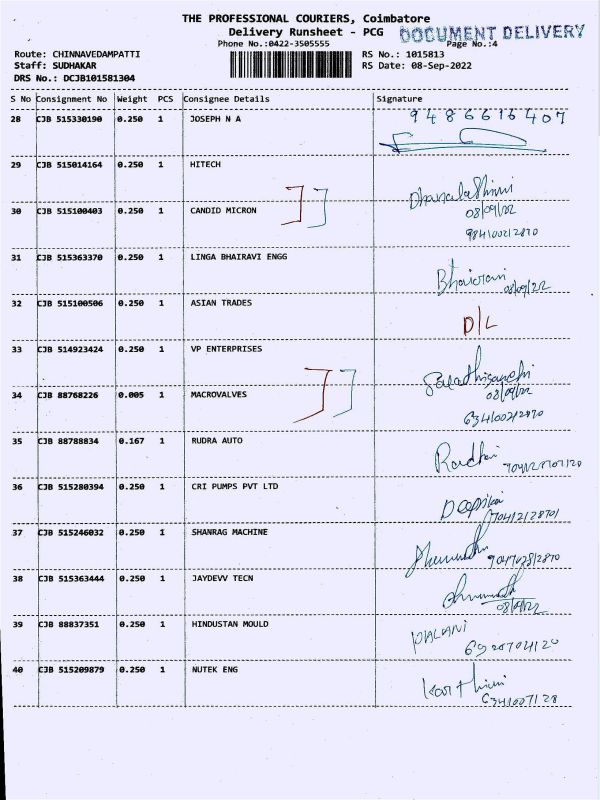 THE PROFESSIONAL COURIERS, Coimbatore
Delivery Runsheet - PCG
DOCUMENT DELIVERY
Phone No.:0422-3505555
Page No.:4
Route: CHINNAVEDAMPATTI
RS No.: 1015813
Staff: SUDHAKAR
RS Date: 08-Sep-2022
DRS No.: DCJB101581304
S No Consignment No Weight PCS Consignee Details Signature
28 CJB 515330190 0.250 1 JOSEPH N A 9486616407
29 CJB 515014164 0.250 1 HITECH
08/09/22
30 CJB 515100403 0.250 1 CANDID MICRON
31 CJB 515363370 0.250 1 LINGA BHAIRAVI ENGG
08/09/22
32 CJB 515100506 0.250 1 ASIAN TRADES D/L
33 CJB 514923424 0.250 1 VP ENTERPRISES
34 CJB 88768226 0.005 1 MACROVALVES 08/09/22
35 CJB 88788834 0.167 1 RUDRA AUTO
36 CJB 515280394 0.250 1 CRI PUMPS PVT LTD Deepika
37 CJB 515246032 0.250 1 SHANRAG MACHINE
38 CJB 515363444 0.250 1 JAYDEVV TECN
08/09/22
39 CJB 88837351 0.250 1 HINDUSTAN MOULD PALANI
40 CJB 515209879 0.250 1 NUTEK ENG